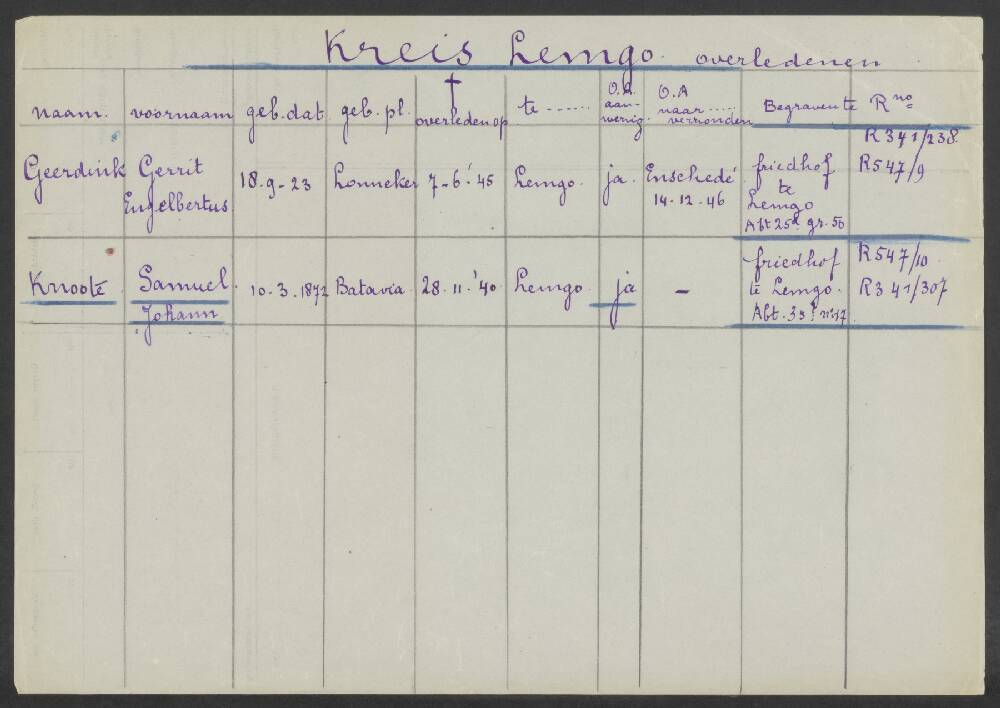 Kreis Lemgo. overledenen
naam. voornaam geb.dat. geb.pl. † overleden op te ...... O.A. aan-wezig. O.A naar ..... verzonden Begraven te R no
Geerdink Gerrit Engelbertus 18.9-23 Lonneker 7-6-'45 Lemgo. ja. Enschedé 14-12-46 friedhof te Lemgo Abt 25d gr. 50 R341/238. R547/9
Knoote Samuel Johann 10.3.1872 Batavia 28.11.'40 Lemgo ja - friedhof te Lemgo. Abt. R547/10 R341/307